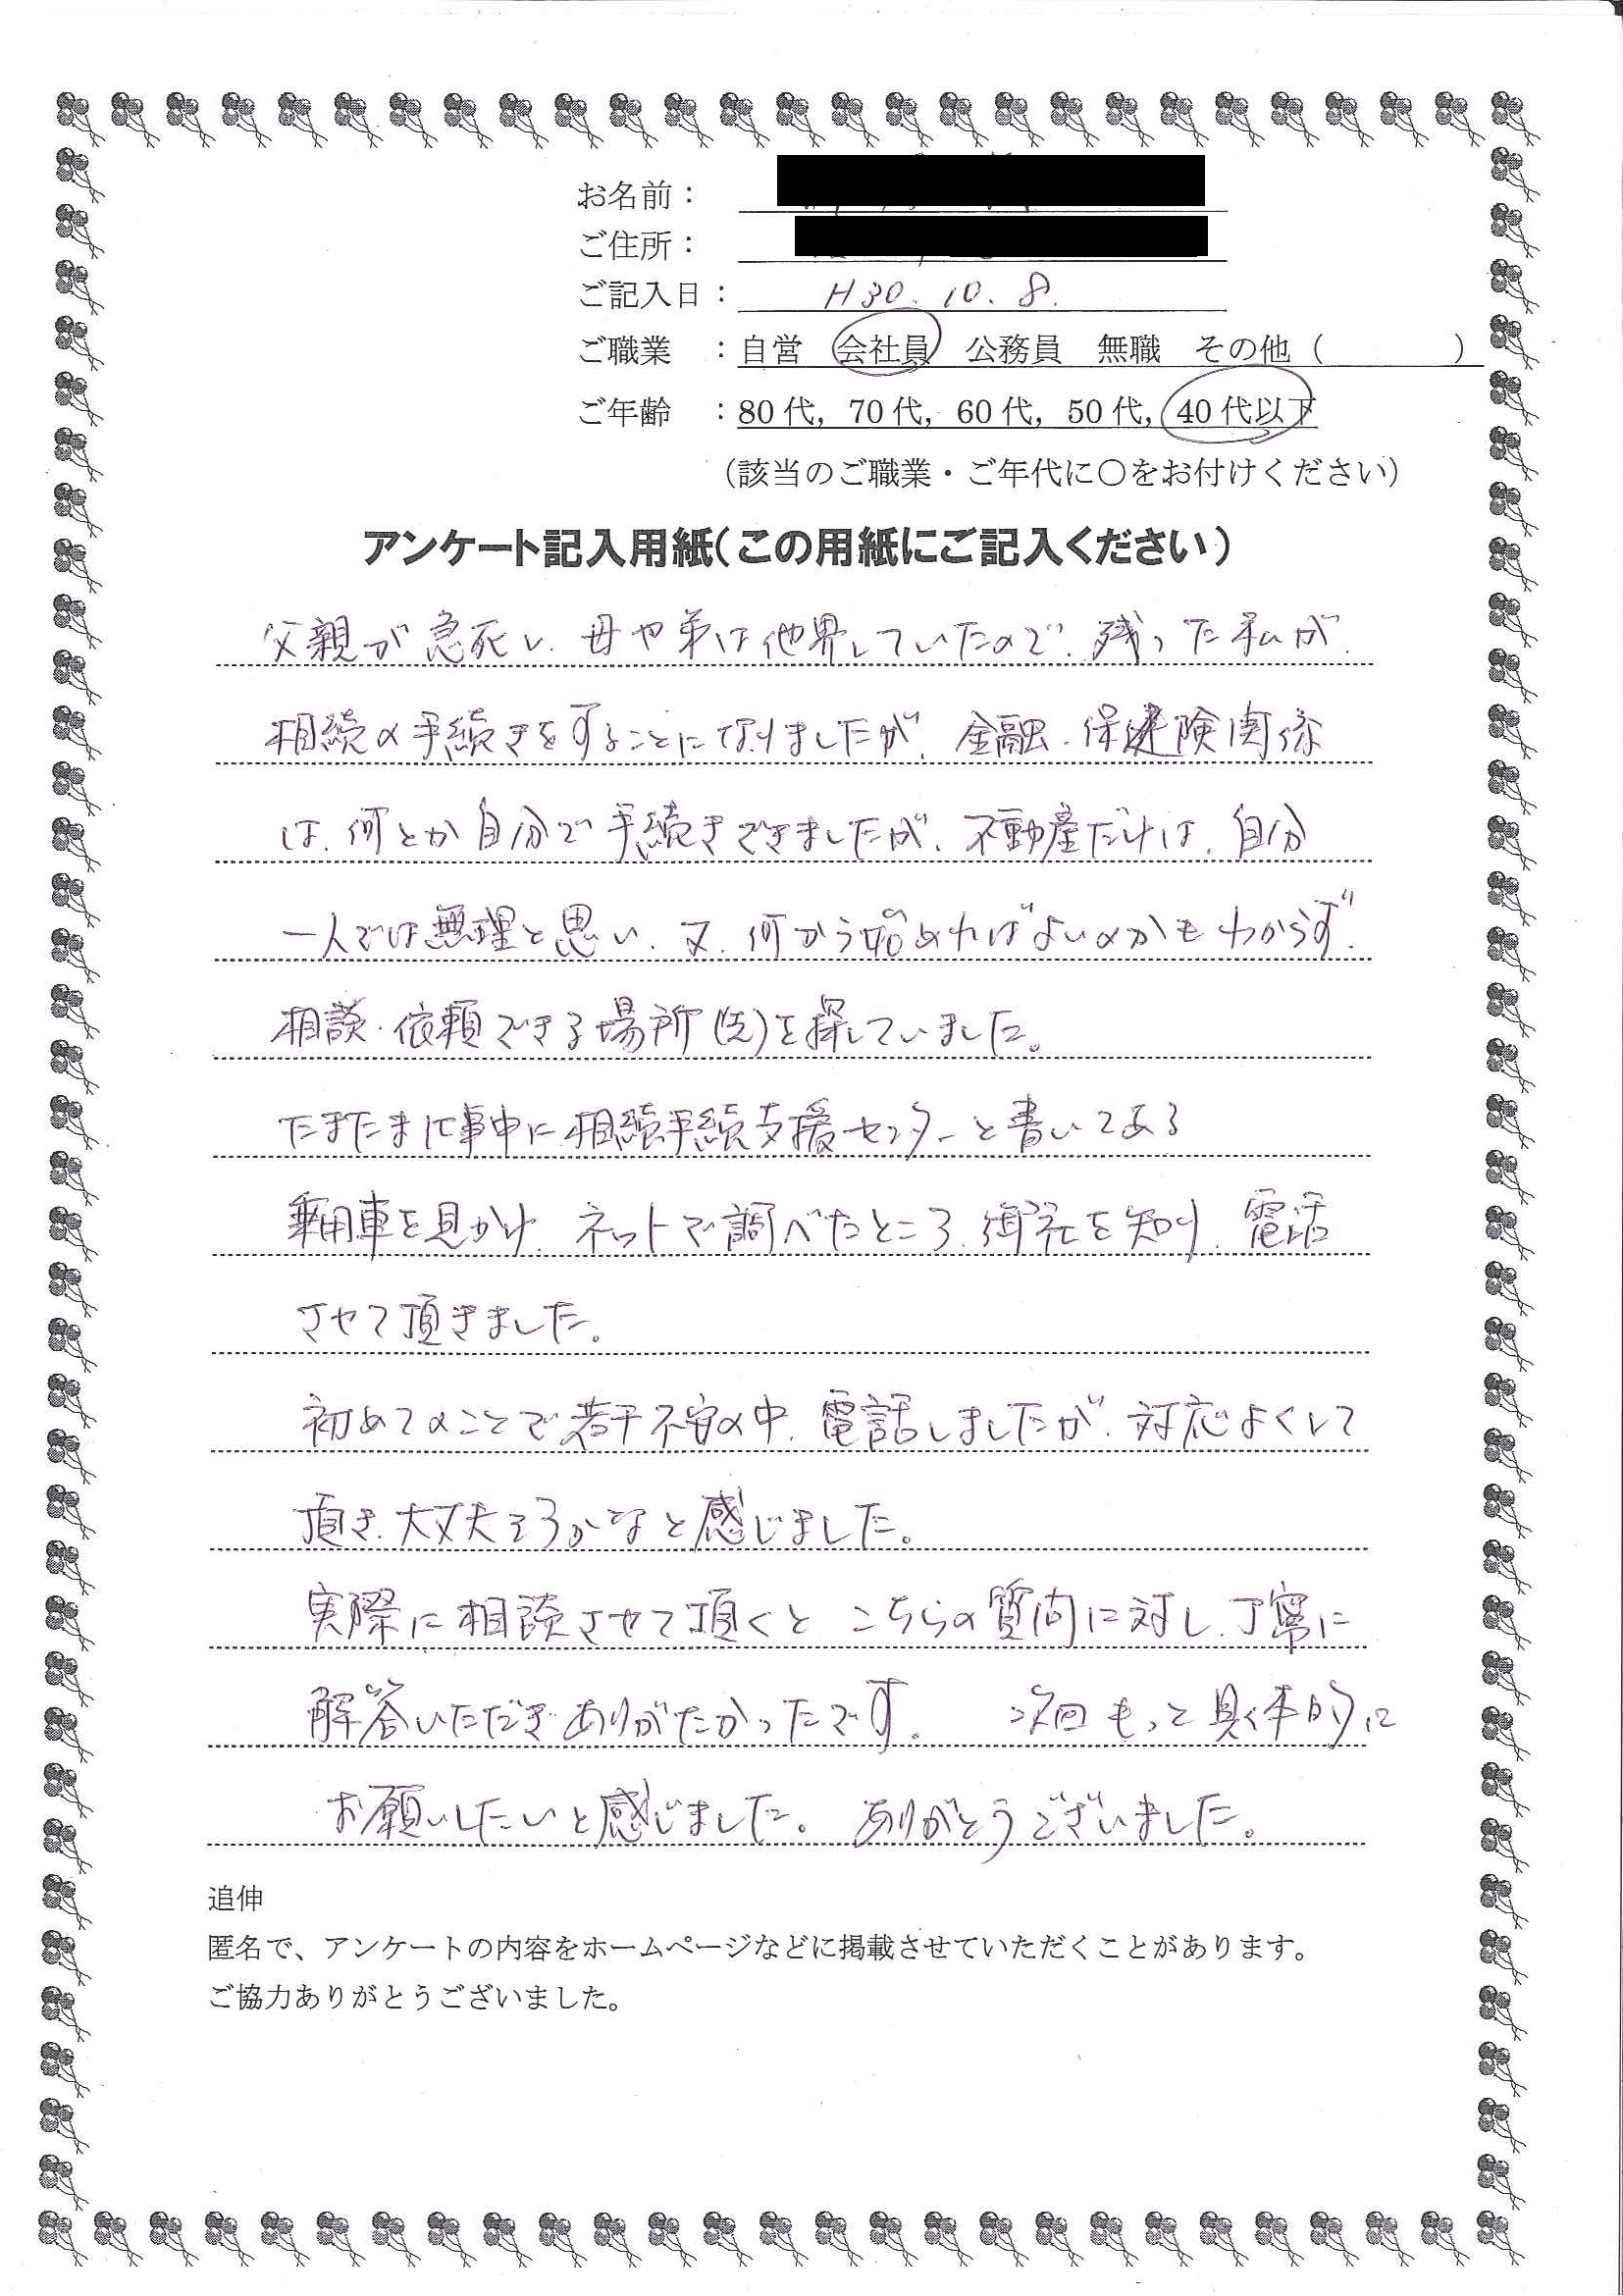 お名前：
ご住所：
ご記入日： H30.10.8.
ご職業 ：自営 会社員 公務員 無職 その他（ ）
ご年齢 ：80代，70代，60代，50代，40代以下
（該当のご職業・ご年代に〇をお付けください）
アンケート記入用紙（この用紙にご記入ください）
父親が急死し、母や弟は他界していたので、残った私が、
相続の手続きをすることになりましたが、金融、保険関係
は、何とか自分で手続きできましたが、不動産だけは、自分
一人では無理と思い、又、何から始めればよいのかもわからず、
相談・依頼できる場所（先）を探していました。
たまたま仕事中に相続手続支援センターと書いてある
乗用車を見かけ、ネットで調べたところ、御社を知り、電話
させて頂きました。
初めてのことで若干不安の中、電話しましたが、対応よくして
頂き、大丈夫そうかなと感じました。
実際に相談させて頂くと こちらの質問に対し、丁寧に
解答いただきありがたかったです。 次回もっと具体的に
お願いしたいと感じました。 ありがとうございました。
追伸
匿名で、アンケートの内容をホームページなどに掲載させていただくことがあります。
ご協力ありがとうございました。